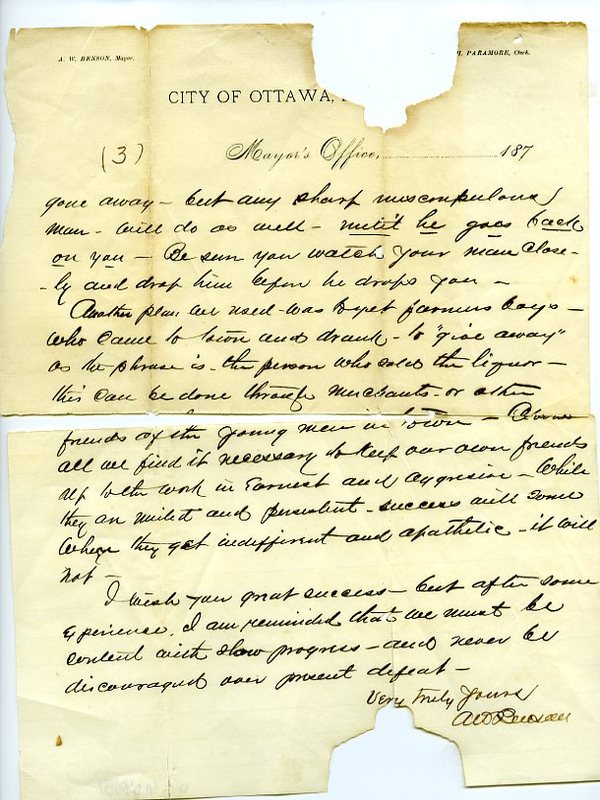 A. W. BENSON, Mayor.
H. PARAMORE, Clerk.
CITY OF OTTAWA,
(3) Mayor's Office, 187
gone away – but any sharp unscrupulous
man – will do as well – until he goes back
on you – Be sure you watch your man close-
-ly and drop him before he drops you –
Another plan we used – was to get farmers boys –
who came to town and drank – to "give away"
as the phrase is – the person who sold the liquor –
this can be done through merchants – or other
friends of the young men in town – Above
all we find it necessary to keep our own friends
up to the work in Earnest and aggresive – While
they are united and persistent – success will come
When they get indifferent and apathetic – it will
not –
I wish you great success – but after some
experience, I am reminded that we must be
content with slow progress – and never be
discouraged over present defeat –
Very truly Yours
AWBenson